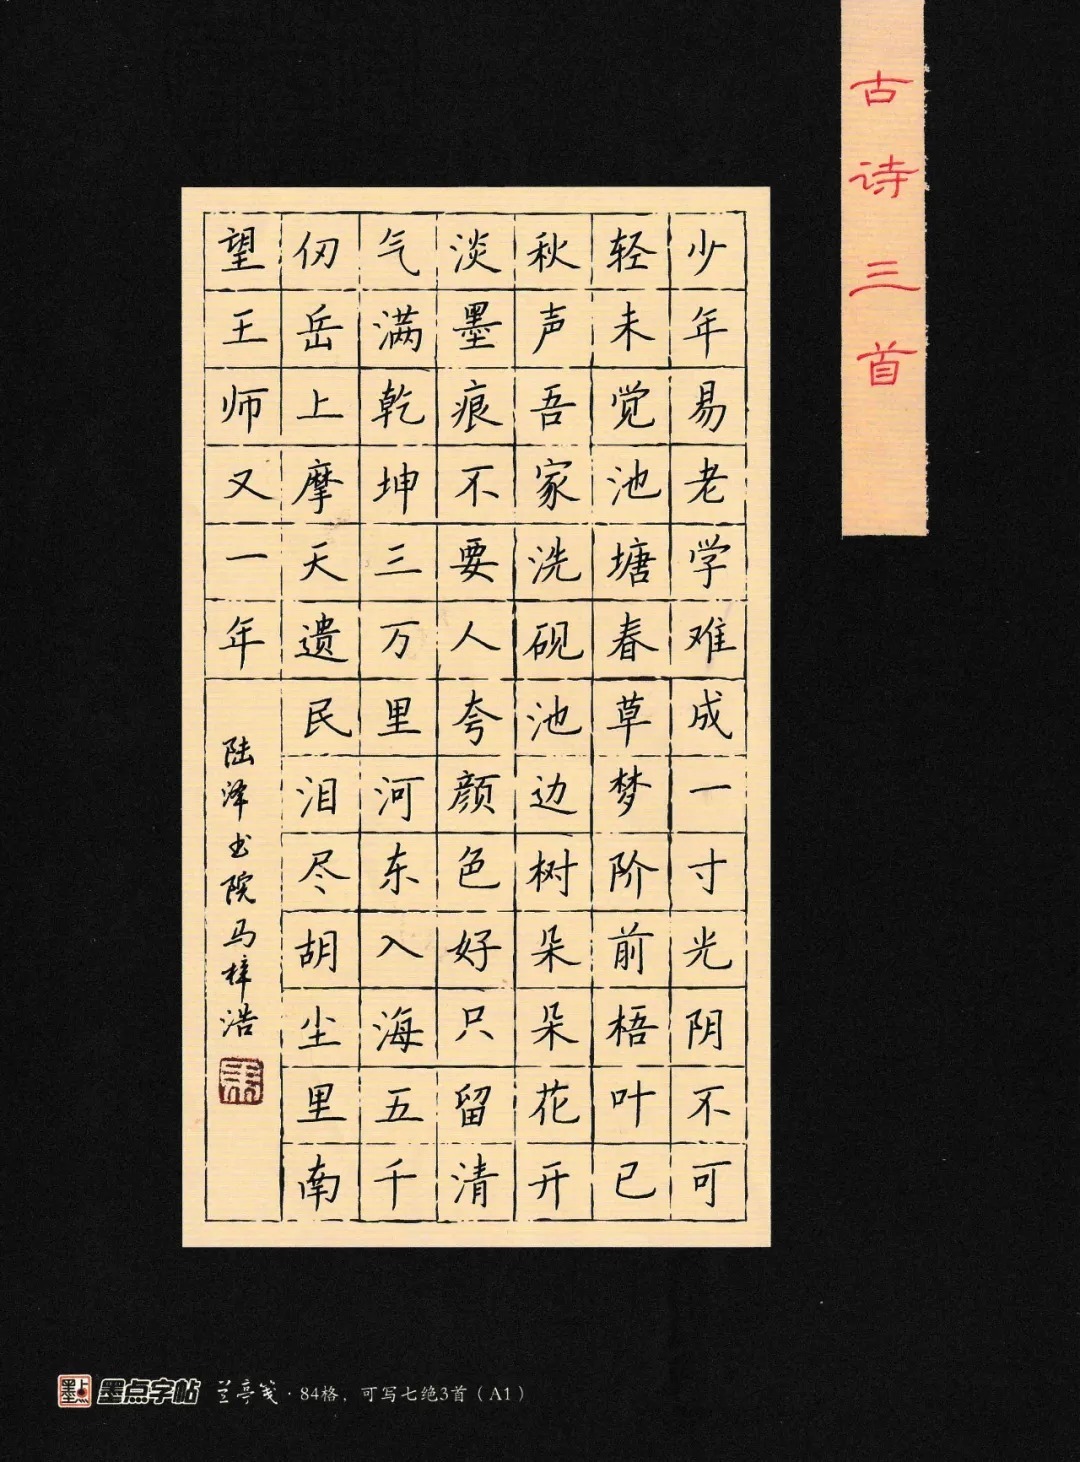 古诗三首
少年易老学难成一寸光阴不可
轻未觉池塘春草梦阶前梧叶已
秋声吾家洗砚池边树朵朵花开
淡墨痕不要人夸颜色好只留清
气满乾坤三万里河东入海五千
仞岳上摩天遗民泪尽胡尘里南
望王师又一年
陆泽书院马梓浩
墨点字帖 兰亭笺·84格，可写七绝3首（A1）